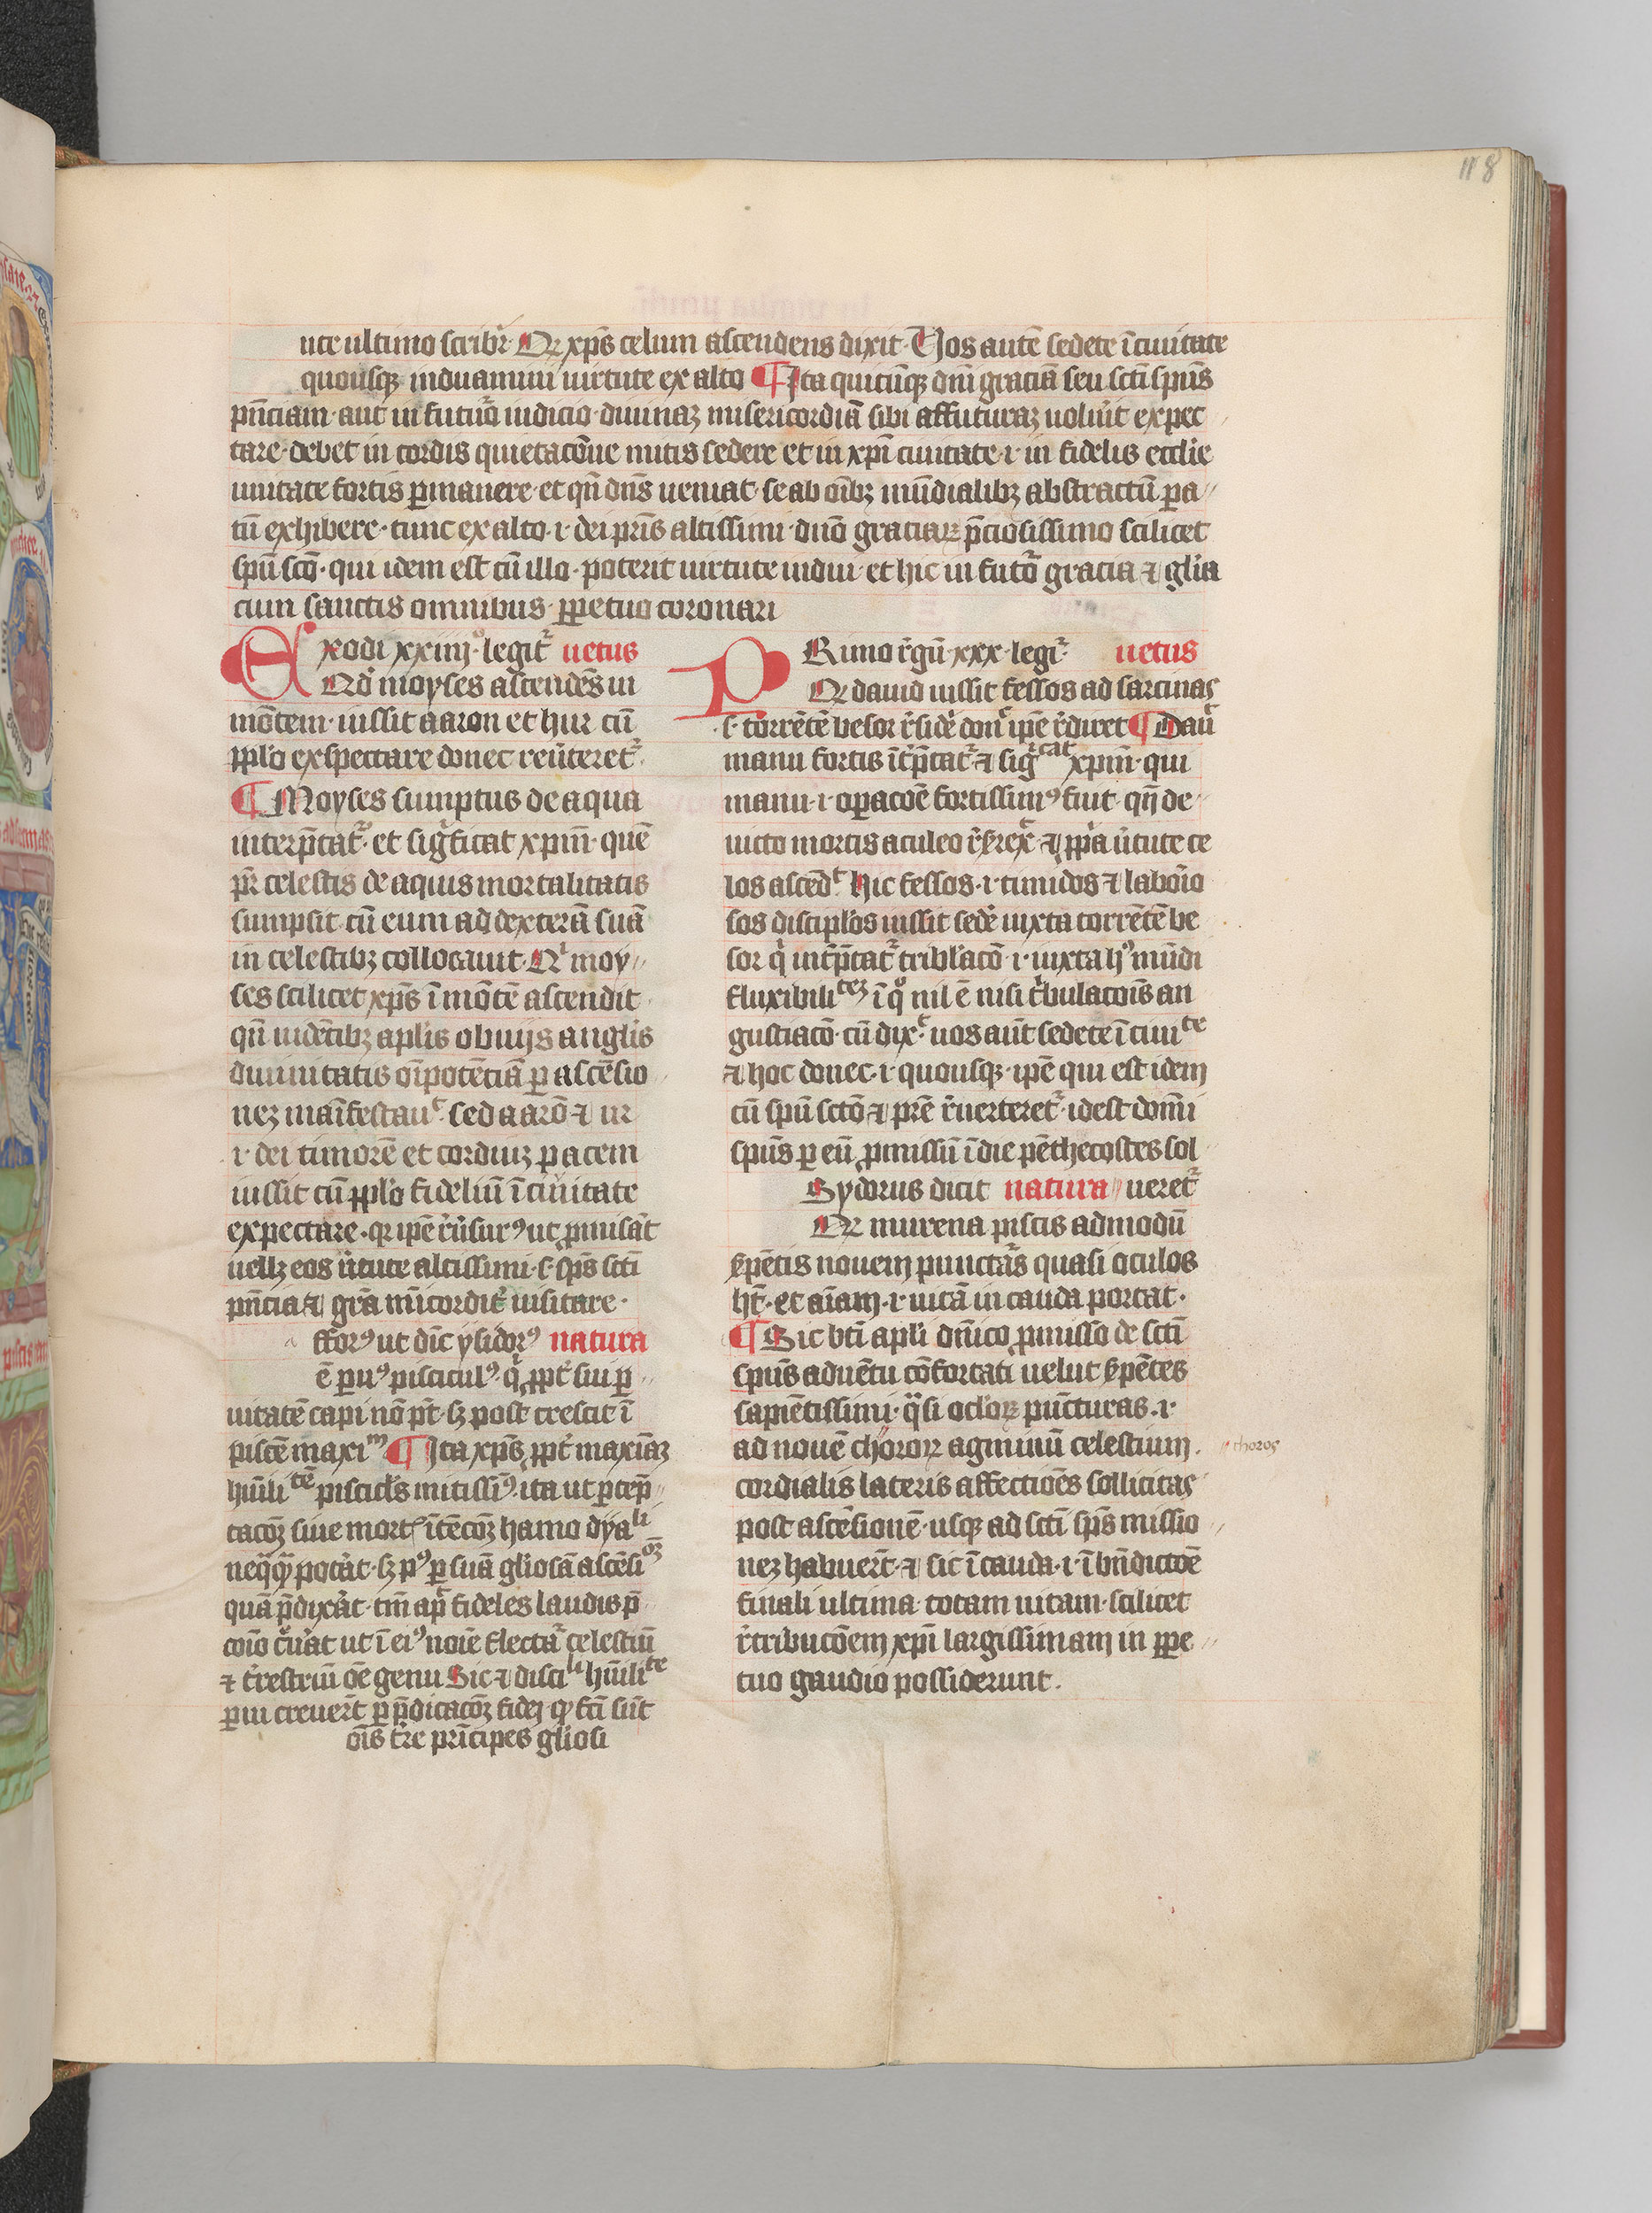 118
uce ultimo scribr̃· Qꝛ xp̄s celum ascendens dixit· Uos autē sedete ī ciuitate
quousqꝫ induamini uirtute ex alto ¶ Ita quicūqꝫ dn̄i graciā seu sctī spūs
pn̄ciam· aut in futuro iudicio· diuinaꝫ misericordiā sibi affuturaꝫ uoluīt expec
tare· debet in cordis quietacōne mitis sedere et in xp̄i ciuitate· i· in fidelis eccl̄ie
unitate fortis ꝑmanere· et qn̄ dn̄s ueniat· se ab oībꝫ mūdialibꝫ abstractū ꝑa
tū exhibere· tunc ex alto· i· dei pr̄is altissimi· dno graciaꝝ p̄ciosissimo scilicet
spū scō· qui idem est cū illo· poterit uirtute indui· et hic in futo gracia ⁊ gl̄ia
cum sanctis omnibus· ꝑpetuo coronari
Exodi xxiiij° legit᷑ uetus
Qd moyses ascendēs in
mōtem· iussit aaron et hur cū
pplo exspectare donec reūteret᷑·
¶ Moyses sumptus de aqua
interp̄tat᷑· et sigficat xpm̄· quē
pr̄ celestis de aquis mortalitatis
sumpsit· cū eum ad dexterā suā
in celestibꝫ collocauit· Qꝛ moy
ses scilicet xp̄s ī mōtē ascendit
qn̄ uidētibꝫ apl̄is obuijs angl̄is
diuinitatis oīpotēciā ꝑ ascēsio
neꝫ maīfestauᵗ· sed aarō ⁊ ur
i· dei timorē et cordiuꝫ pacem
iussit cū pplo fideliū ī ciuitate
expectare· qꝛ ipē reūsurꝰ ut ꝓmisat
uellꝫ eos ūtute altissimi· s· sp̄s sctī
pn̄cia ⁊ gr̄a m̄icordit᷑ uisitare·
fforꝰ ut dic̄ ysidorꝰ natura
ē ꝑuꝰ pisciculꝰ· q̄ ꝓpt᷑ sui ꝑ
uitatē capi nō p̄t· sꝫ post crescit ī
piscē maxiᵐ ¶ Ita xp̄s ꝓpt᷑ maxīaꝫ
hūiliᵗᵉ piscicl̄s mitissīꝰ· ita ut ꝑcep
tacōꝫ siue mort᷑ ītēcōꝫ hamo dyaˡⁱ
neq̄qꝫ potat· sꝫ pꝰ ꝑ suā gliosā ascēsiᵒꝫ
quā p̄dixat· tm̄ apᷓ fideles laudis p̄
coīo c̄uat ut ī eiꝰ noīe flectat᷑ celestiū
⁊ t᷑restriū oē genu Sic ⁊ disciˡⁱ hūiliᵗᵉ
ꝑui creuer̄t ꝑ p̄dicacōꝫ fidej qꝫ fcī sūt
oīs t᷑re prīcipes gliosi
PRimo rgū xxx· legit᷑ uetus
Qꝛ dauid iussit fessos ad sarcinas
s· torrētē besor r̄side donᶜ ipē r̄diret ¶ Dauᵈ
manu fortis ītp̄tat᷑ ⁊ sigᶜᵃᵗ xpm̄· qui
manu· i· oꝑacoē fortissimꝰ fuit· qn̄ de
uicto mortis aculeo r̄surexᵗ ⁊ ꝓpa ūtute ce
los ascedᵗ hic fessos· i· timidos ⁊ laboīo
sos disciplos iussit sede iuxta torrētē be
sor q̄ intp̄tat᷑ tribl̄aco· i· iuxta hꝰ mūdi
fluxibiliᵗᵉꝫ ī qo nil ē nisi t᷑bulacoīs an
gustiacō· cū dixᵗ· uos aut sedete ī ciuiᵗᵉ
⁊ hoc donec· i· quousqꝫ· ipē qui est idem
cū spū sctō ⁊ pr̄e r̄uerteret᷑· idest donī
spūs ꝑ eū ꝓmissū ī die pēthecostes sol
Sydorus dicit natura ueret᷑
Qꝛ murena piscis admodū
s̄pētis nouem puncturas quasi oculos
ht̄· et aīam· i· uitā in cauda portat·
¶ Sic btī apl̄i dn̄ico ꝓmisso de sctī
spūs aduētu cōfortati uelut s̄pētes
sapiētissimi· q̄si ocl̄oꝝ pūcturas· i·
ad nouē choroꝝ agminū celestium· choros
cordialis lateris affectiōes sollicitas
post ascēsionē· usqꝫ ad sctī sp̄s missio
neꝫ habuer̄t· ⁊ sic ī cauda· i· ī bn̄dictoē
finali ultima· totam uitam· scilicet
r̄tribucōem xp̄i largissimam in ꝑpe
tuo gaudio possiderunt.